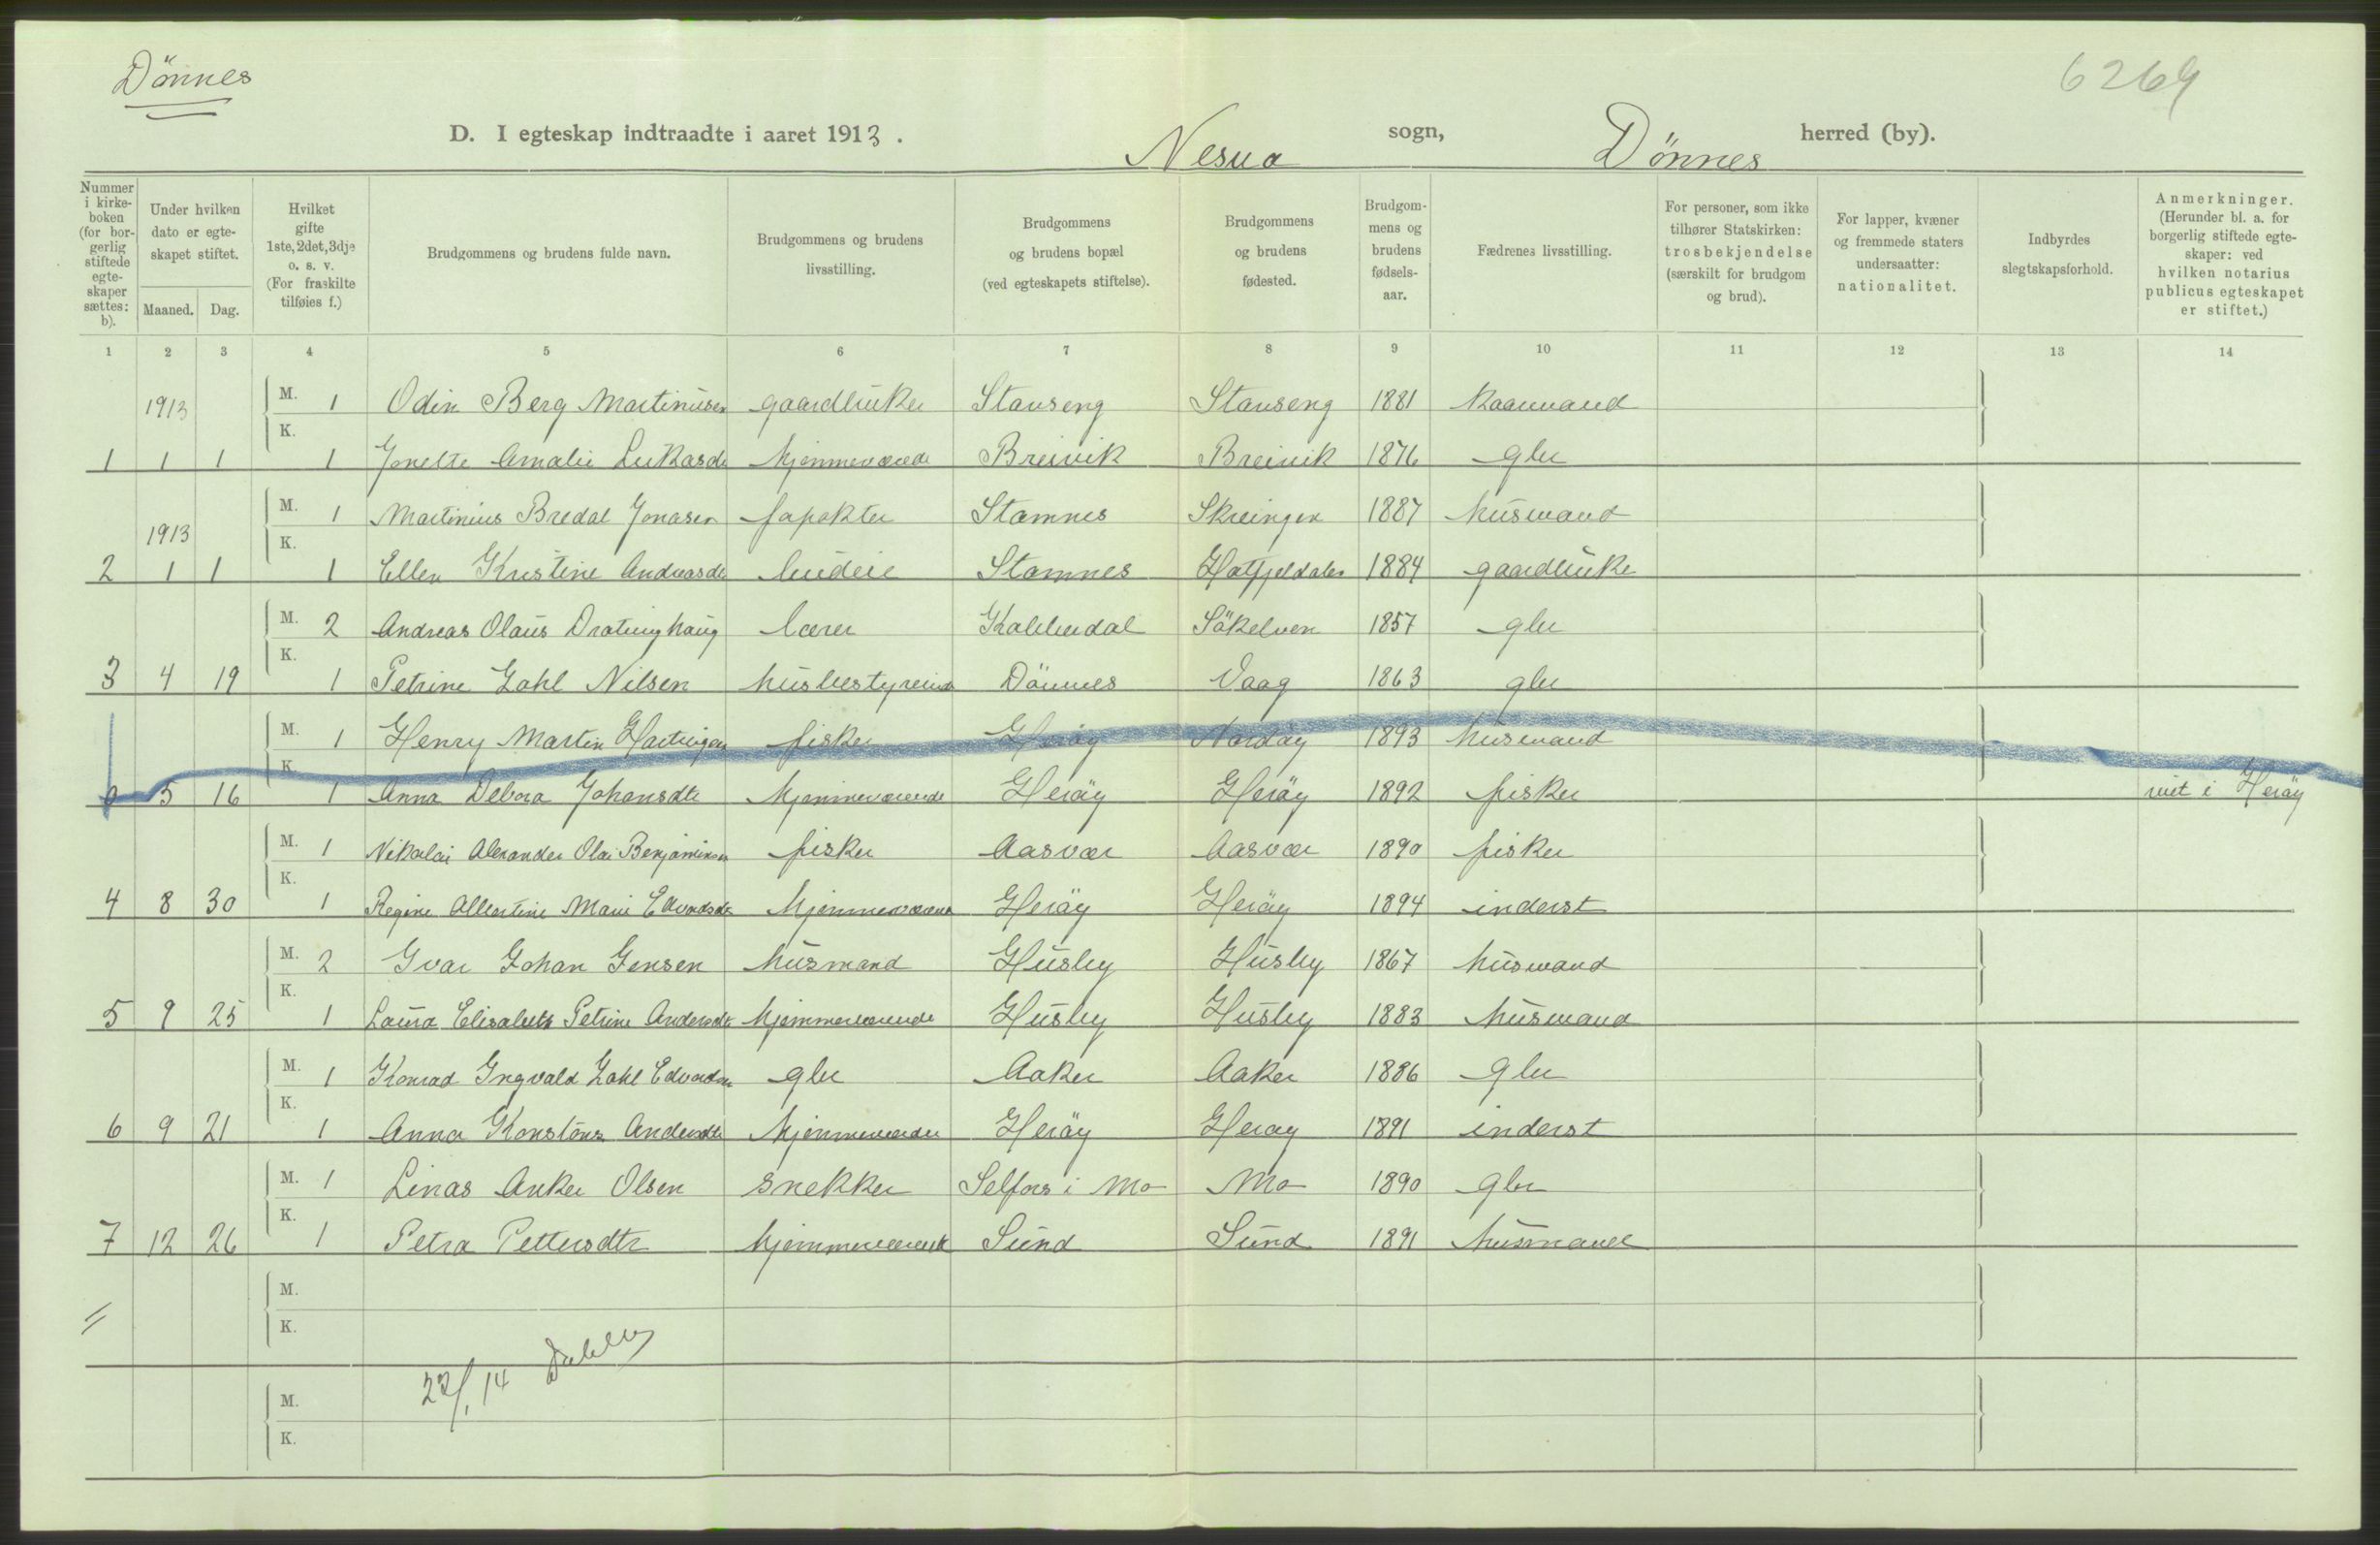 Dönnes
6269
D. I egteskap indtraadte i aaret 1913.
Nesna sogn, Dönnes herred (by).
Nummer i kirkeboken (for borgerlig stiftede egteskaper sættes: b).
Under hvilken dato er egteskapet stiftet.
Maaned. Dag.
Hvilket gifte 1ste, 2det, 3dje o. s. v. (For fraskilte tilføies f.)
Brudgommens og brudens fulde navn.
Brudgommens og brudens livsstilling.
Brudgommens og brudens bopæl (ved egteskapets stiftelse).
Brudgommens og brudens fødested.
Brudgommens og brudens fødselsaar.
Fædrenes livsstilling.
For personer, som ikke tilhører Statskirken: trosbekjendelse (særskilt for brudgom og brud).
For lapper, kvæner og fremmede staters undersaatter: nationalitet.
Indbyrdes slegtskapsforhold.
Anmerkninger. (Herunder bl. a. for borgerlig stiftede egteskaper: ved hvilken notarius publicus egteskapet er stiftet.)
1 2 3 4 5 6 7 8 9 10 11 12 13 14
1913 M. 1 Odin Berg Martinusen gaardbruker Stavseng Stavseng 1881 kaarmand
1 1 1 K. 1 Jonette Amalie Lukasdt hjemmeværende Breivik Breivik 1876 gbr
1913 M. 1 Martinius Bredal Jonasen Stamnes 1887 husmand
2 1 1 K. 1 Ellen Kristine Andreasdt budeie Stamnes Hatfjeldalen 1884 gaardbruker
M. 2 Andreas Olaus lærer Kaldal Sökelven 1857 gbr
3 4 19 K. 1 Petrine Zahl Nilsen husbestyrerinde Dönnes Vaag 1863 gbr
M. 1 Henry Martin Hartvigsen fisker Heröy Nordöy 1893 husmand
5 16 K. 1 Anna Debora Johansdtr hjemmeværende Heröy Heröy 1892 fisker viet i Heröy
M. 1 Nikolai Alexander Olai Benjaminsen fisker Aasvær Aasvær 1890 fisker
4 8 30 K. 1 Regine Albertine Marie Edvardsdtr hjemmeværende Heröy Heröy 1894 inderst
M. 2 Ivar Johan Jensen husmand Husby Husby 1867 husmand
5 9 25 K. 1 Laura Elisabeth Petrine Andersdtr hjemmeværende Husby Husby 1883 husmand
M. 1 Konrad Ingvald Zahl Edvardsen gbr Aaker Aaker 1886 gbr
6 9 21 K. 1 Anna Konstanse Andersdtr hjemmeværende Heröy Heröy 1891 inderst
M. 1 Linas Anker Olsen snekker Selfors i Mo Mo 1890 gbr
7 12 26 K. 1 Petra Pettersdtr hjemmeværende Sund Sund 1891 husmand
M.
K.
22/1 14
M.
K.